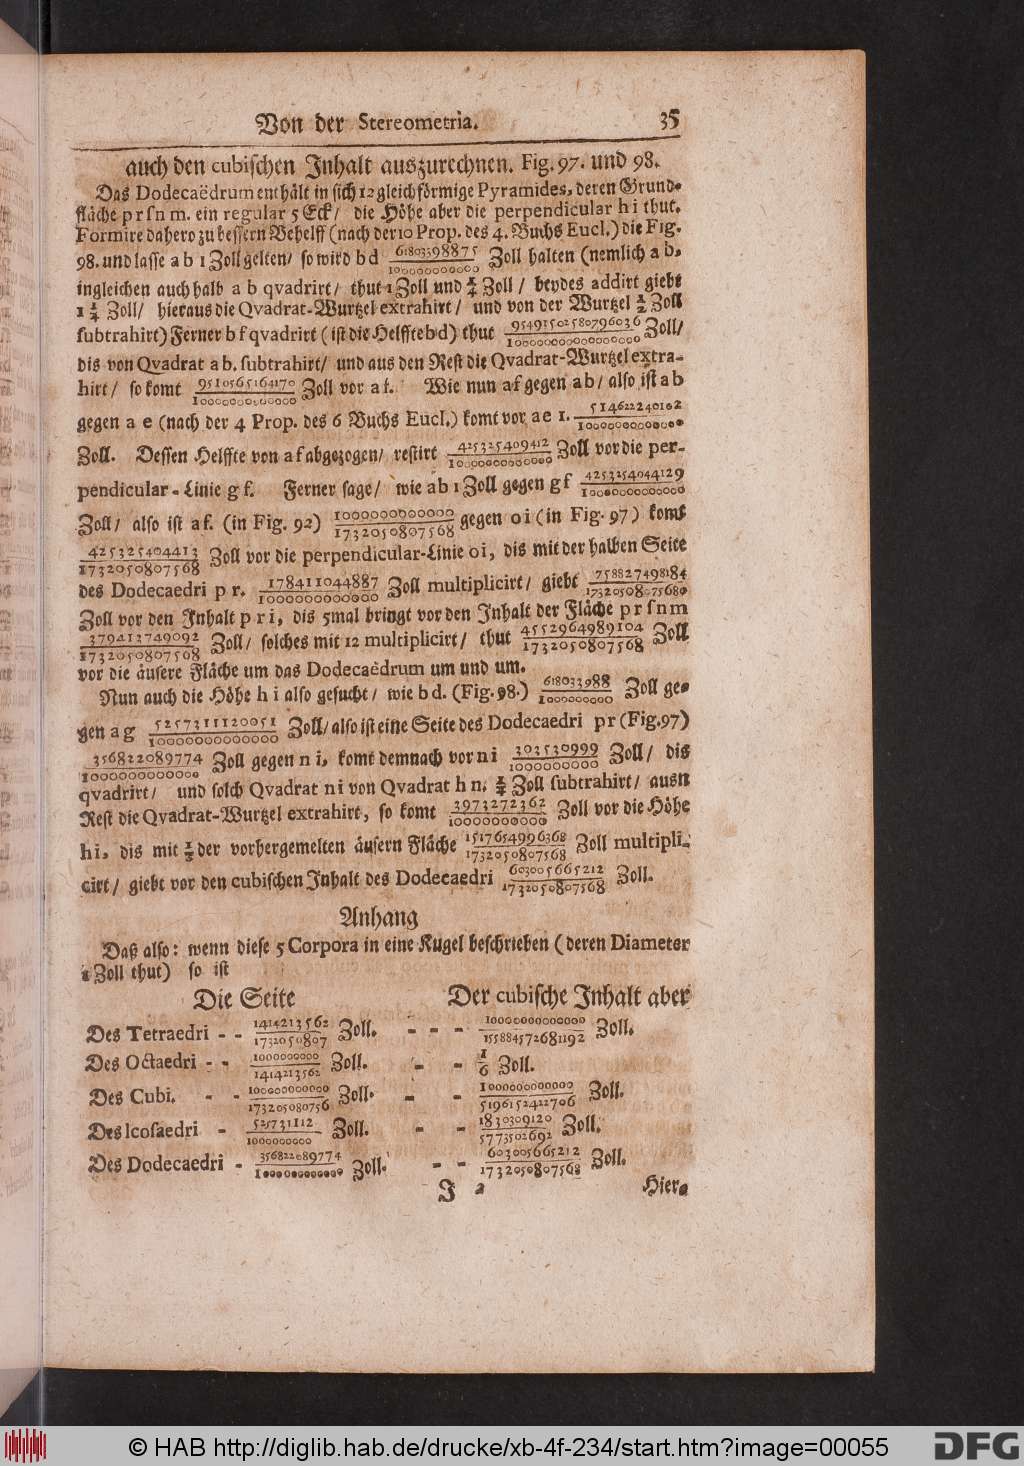 Von der Stereometria. 35
auch den cubischen Inhalt auszurechnen. Fig. 97. und 98.
Das Dodecaëdrum enthält in sich 12 gleichförmige Pyramides, deren Grund-
fläche p r s n m. ein regular 5 Eck/ die Höhe aber die perpendicular h i thut.
Formire dahero zu bessern Behelff (nach der 10 Prop. des 4. Buchs Eucl.) die Fig.
98. und lasse a b 1 Zoll gelten/ so wird b d 61803398875/100000000000 Zoll halten (nemlich a b,
ingleichen auch halb a b qvadrirt/ thut 1 Zoll und 1/4 Zoll/ beydes addirt giebt
1 1/4 Zoll/ hieraus die Qvadrat-Wurtzel extrahirt/ und von der Wurtzel 1/2 Zoll
subtrahirt) Ferner b f qvadrirt (ist die Helffte b d) thut 95491502580796036/10000000000000000000 Zoll/
dis von Qvadrat a b. subtrahirt/ und aus den Rest die Qvadrat-Wurtzel extra-
hirt/ so komt 951056516417 0/1000000000000 Zoll vor a f. Wie nun a f gegen a b/ also ist a b
gegen a e (nach der 4 Prop. des 6 Buchs Eucl.) komt vor a e 1. 514622240102/1000000000000
Zoll. Dessen Helffte von a f abgezogen/ restirt 425325409412/1000000000000 Zoll vor die per-
pendicular-Linie g f. Ferner sage/ wie a b 1 Zoll gegen g f 4253254044129/10000000000000
Zoll/ also ist a f. (in Fig. 92) 1000000000000/1732050807568 gegen o i (in Fig. 97) komt
425325404413/1732050807568 Zoll vor die perpendicular-Linie o i, dis mit der halben Seite
des Dodecaedri p r. 178411044887/1000000000000 Zoll multiplicirt/ giebt 758827498184/17320508075680
Zoll vor den Inhalt p r i, dis 5mal bringt vor den Inhalt der Fläche p r s n m
379413749092/1732050807568 Zoll/ solches mit 12 multiplicirt/ thut 4552964989104/1732050807568 Zoll
vor die äusere Fläche um das Dodecaëdrum um und um.
Nun auch die Höhe h i also gesucht/ wie b d. (Fig. 98.) 618033988/1000000000 Zoll ge-
gen a g 5257311120051/10000000000000 Zoll/ also ist eine Seite des Dodecaedri p r (Fig. 97)
356822089774/1000000000000 Zoll gegen n i, komt demnach vor n i 303530999/1000000000 Zoll/ dis
qvadrirt/ und solch Qvadrat n i von Qvadrat h n, 1/4 Zoll subtrahirt/ ausn
Rest die Qvadrat-Wurtzel extrahirt, so komt 3973272362/10000000000 Zoll vor die Höhe
h i, dis mit 1/3 der vorhergemelten äusern Fläche 1517654996368/1732050807568 Zoll multipli-
cirt/ giebt vor den cubischen Inhalt des Dodecaedri 603005665212/1732050807568 Zoll.
Anhang
Daß also: wenn diese 5 Corpora in eine Kugel beschrieben (deren Diameter
1 Zoll thut) so ist
Die Seite Der cubische Inhalt aber
Des Tetraedri - - 1414213562/1732050807 Zoll. - - - 1000000000000/155884572681192 Zoll.
Des Octaedri - - 1000000000/1414213562 Zoll. - - 1/6 Zoll.
Des Cubi. - - 100000000000/173205080756 Zoll. - - 1000000000000/5196152422706 Zoll.
Des Icosaedri - 525731112/1000000000 Zoll. - - 1830309120/5773502692 Zoll.
Des Dodecaedri - 356822089774/1000000000000 Zoll. - - 603005665212/1732050807568 Zoll.
J 2 Hier-
© HAB http://diglib.hab.de/drucke/xb-4f-234/start.htm?image=00055
DFG